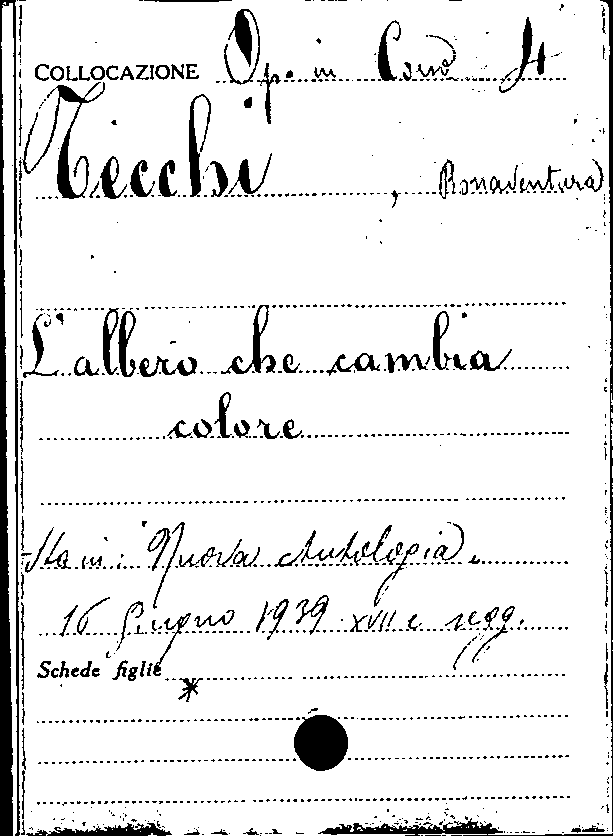 COLLOCAZIONE Op. in Corso 4
Tecchi, Bonaventura
L'albero che cambia
colore
Sta in: Nuova Antologia.
16 Giugno 1939 XVII e segg.
Schede figlie
*